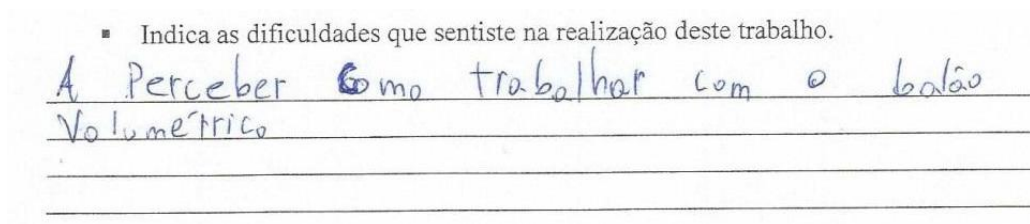 ▪ Indica as dificuldades que sentiste na realização deste trabalho.
A Perceber como trabalhar com o balão
Volumétrico